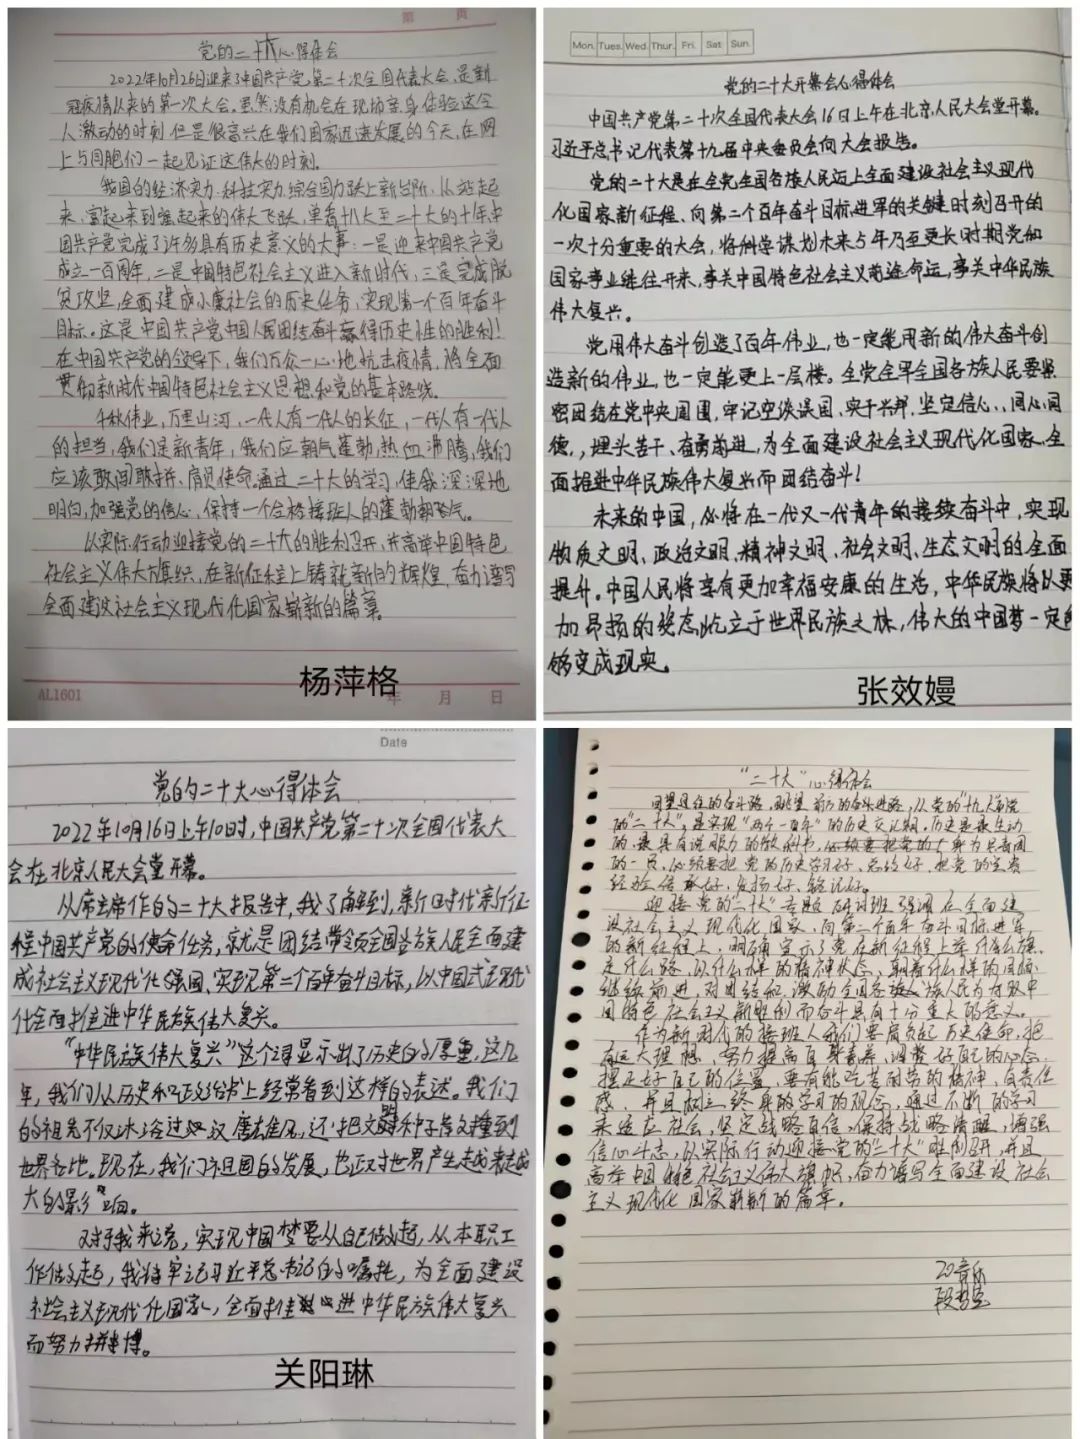 第 页
党的二十大心得体会
2022年10月26日迎来了中国共产党第二十次全国代表大会,是新
冠疫情以来的第一次大会。虽然没有机会在现场亲身体验这令
人激动的时刻但是很高兴在我们国家迅速发展的今天,在网
上与同胞们一起见证这伟大的时刻。
我国的经济实力、科技实力、综合国力跃上新台阶,从站起
来、富起来到强起来的伟大飞跃,单看十八大至二十大的十年中
国共产党完成了许多具有历史意义的大事:一是迎来中国共产党
成立一百周年,二是中国特色社会主义进入新时代,三是完成脱
贫攻坚,全面建成小康社会的历史任务,实现第一个百年奋斗
目标。这是中国共产党中国人民团结奋斗赢得历史性的胜利!
在中国共产党的领导下,我们万众一心地抗击疫情,将全面
贯彻新时代中国特色社会主义思想和党的基本路线。
千秋伟业,万里山河,一代人有一代人的长征,一代人有一代人
的担当,我们是新青年,我们应朝气蓬勃,热血沸腾,我们
应该敢闯敢拼、肩负使命。通过二十大的学习,使我深深地
明白,加强党的信心,保持一个合格接班人的蓬勃朝气。
以实际行动迎接党的二十大的胜利召开,并高举中国特色
社会主义伟大旗帜,在新征程上铸就新的辉煌,奋力谱写
全面建设社会主义现代化国家崭新的篇章。
杨萍格
AL1601 年 月 日
Mon. Tues. Wed. Thur. Fri. Sat. Sun.
党的二十大开幕会心得体会
中国共产党第二十次全国代表大会16日上午在北京人民大会堂开幕。
习近平总书记代表第十九届中央委员会向大会报告。
党的二十大是在全党全国各族人民迈上全面建设社会主义现代
化国家新征程、向第二个百年奋斗目标进军的关键时刻召开的
一次十分重要的大会,将科学谋划未来5年乃至更长时期党和
国家事业继往开来,事关中国特色社会主义前途命运,事关中华民族
伟大复兴。
党用伟大奋斗创造了百年伟业,也一定能用新的伟大奋斗创
造新的伟业,也一定能更上一层楼。全党全军全国各族人民要紧
密团结在党中央周围,牢记空谈误国、实干兴邦,坚定信心,,同心同
德,,埋头苦干、奋勇前进,为全面建设社会主义现代化国家、全
面推进中华民族伟大复兴而团结奋斗!
未来的中国,必将在一代又一代青年的接续奋斗中,实现
物质文明、政治文明、精神文明、社会文明、生态文明的全面
提升。中国人民将享有更加幸福安康的生活,中华民族将以更
加昂扬的姿态屹立于世界民族之林,伟大的中国梦一定能
够变成现实。
张效嫚
Date
党的二十大心得体会
2022年10月16日上午10时,中国共产党第二十次全国代表大
会在北京人民大会堂开幕。
从席主席作的二十大报告中,我了解到,新时代新征
程中国共产党的使命任务,就是团结带领全国各族人民全面建
成社会主义现代化强国、实现第二个百年奋斗目标,以中国式现代
化全面推进中华民族伟大复兴。
"中华民族伟大复兴"这个词显示出了历史的厚重,这几
年,我们从历史和政治书上经常看到这样的表述。我们
的祖先不仅沐浴过汉唐雄风,还把文明种子播种到
世界各地。现在,我们祖国的发展,也正对世界产生越来越
大的影响。
对于我来说,实现中国梦要从自己做起,从本职工
作做起,我将牢记习近平总书记的嘱托,为全面建设
社会主义现代化国家、全面推进中华民族伟大复兴
而努力拼搏。
关阳琳
"二十大"心得体会
回望过往的奋斗路,眺望前方的奋进路,从党的"十九大"到党
的"二十大",是实现"两个一百年"的历史交汇期。历史是最生动
的、最具有说服力的教科书,作为共青团
的一员,必须要把党的历史学习好、总结好,把党的宝贵
经验传承好、发扬好、铭记好。
迎接党的"二十大"专题研讨班强调在全面建
设社会主义现代化国家,向第二个百年奋斗目标进军
的新征程上,明确宣示了党在新征程上举什么旗、
走什么路、以什么样的精神状态、朝着什么样的目标
继续前进,对团结和激励全国各族人民为夺取中
国特色社会主义新胜利而奋斗具有十分重大的意义。
作为新时代的接班人我们要肩负起历史使命,抱
有远大理想,努力提高自身素养,调整好自己的心态,
摆正好自己的位置,要有能吃苦耐劳的精神,有责任
感,并且树立终身的学习的观念,通过不断的学习
来适应社会,坚定战略自信,保持战略清醒,增强
信心斗志,以实际行动迎接党的"二十大"胜利召开,并且
高举中国特色社会主义伟大旗帜,奋力谱写全面建设社会
主义现代化国家崭新的篇章。
20音乐